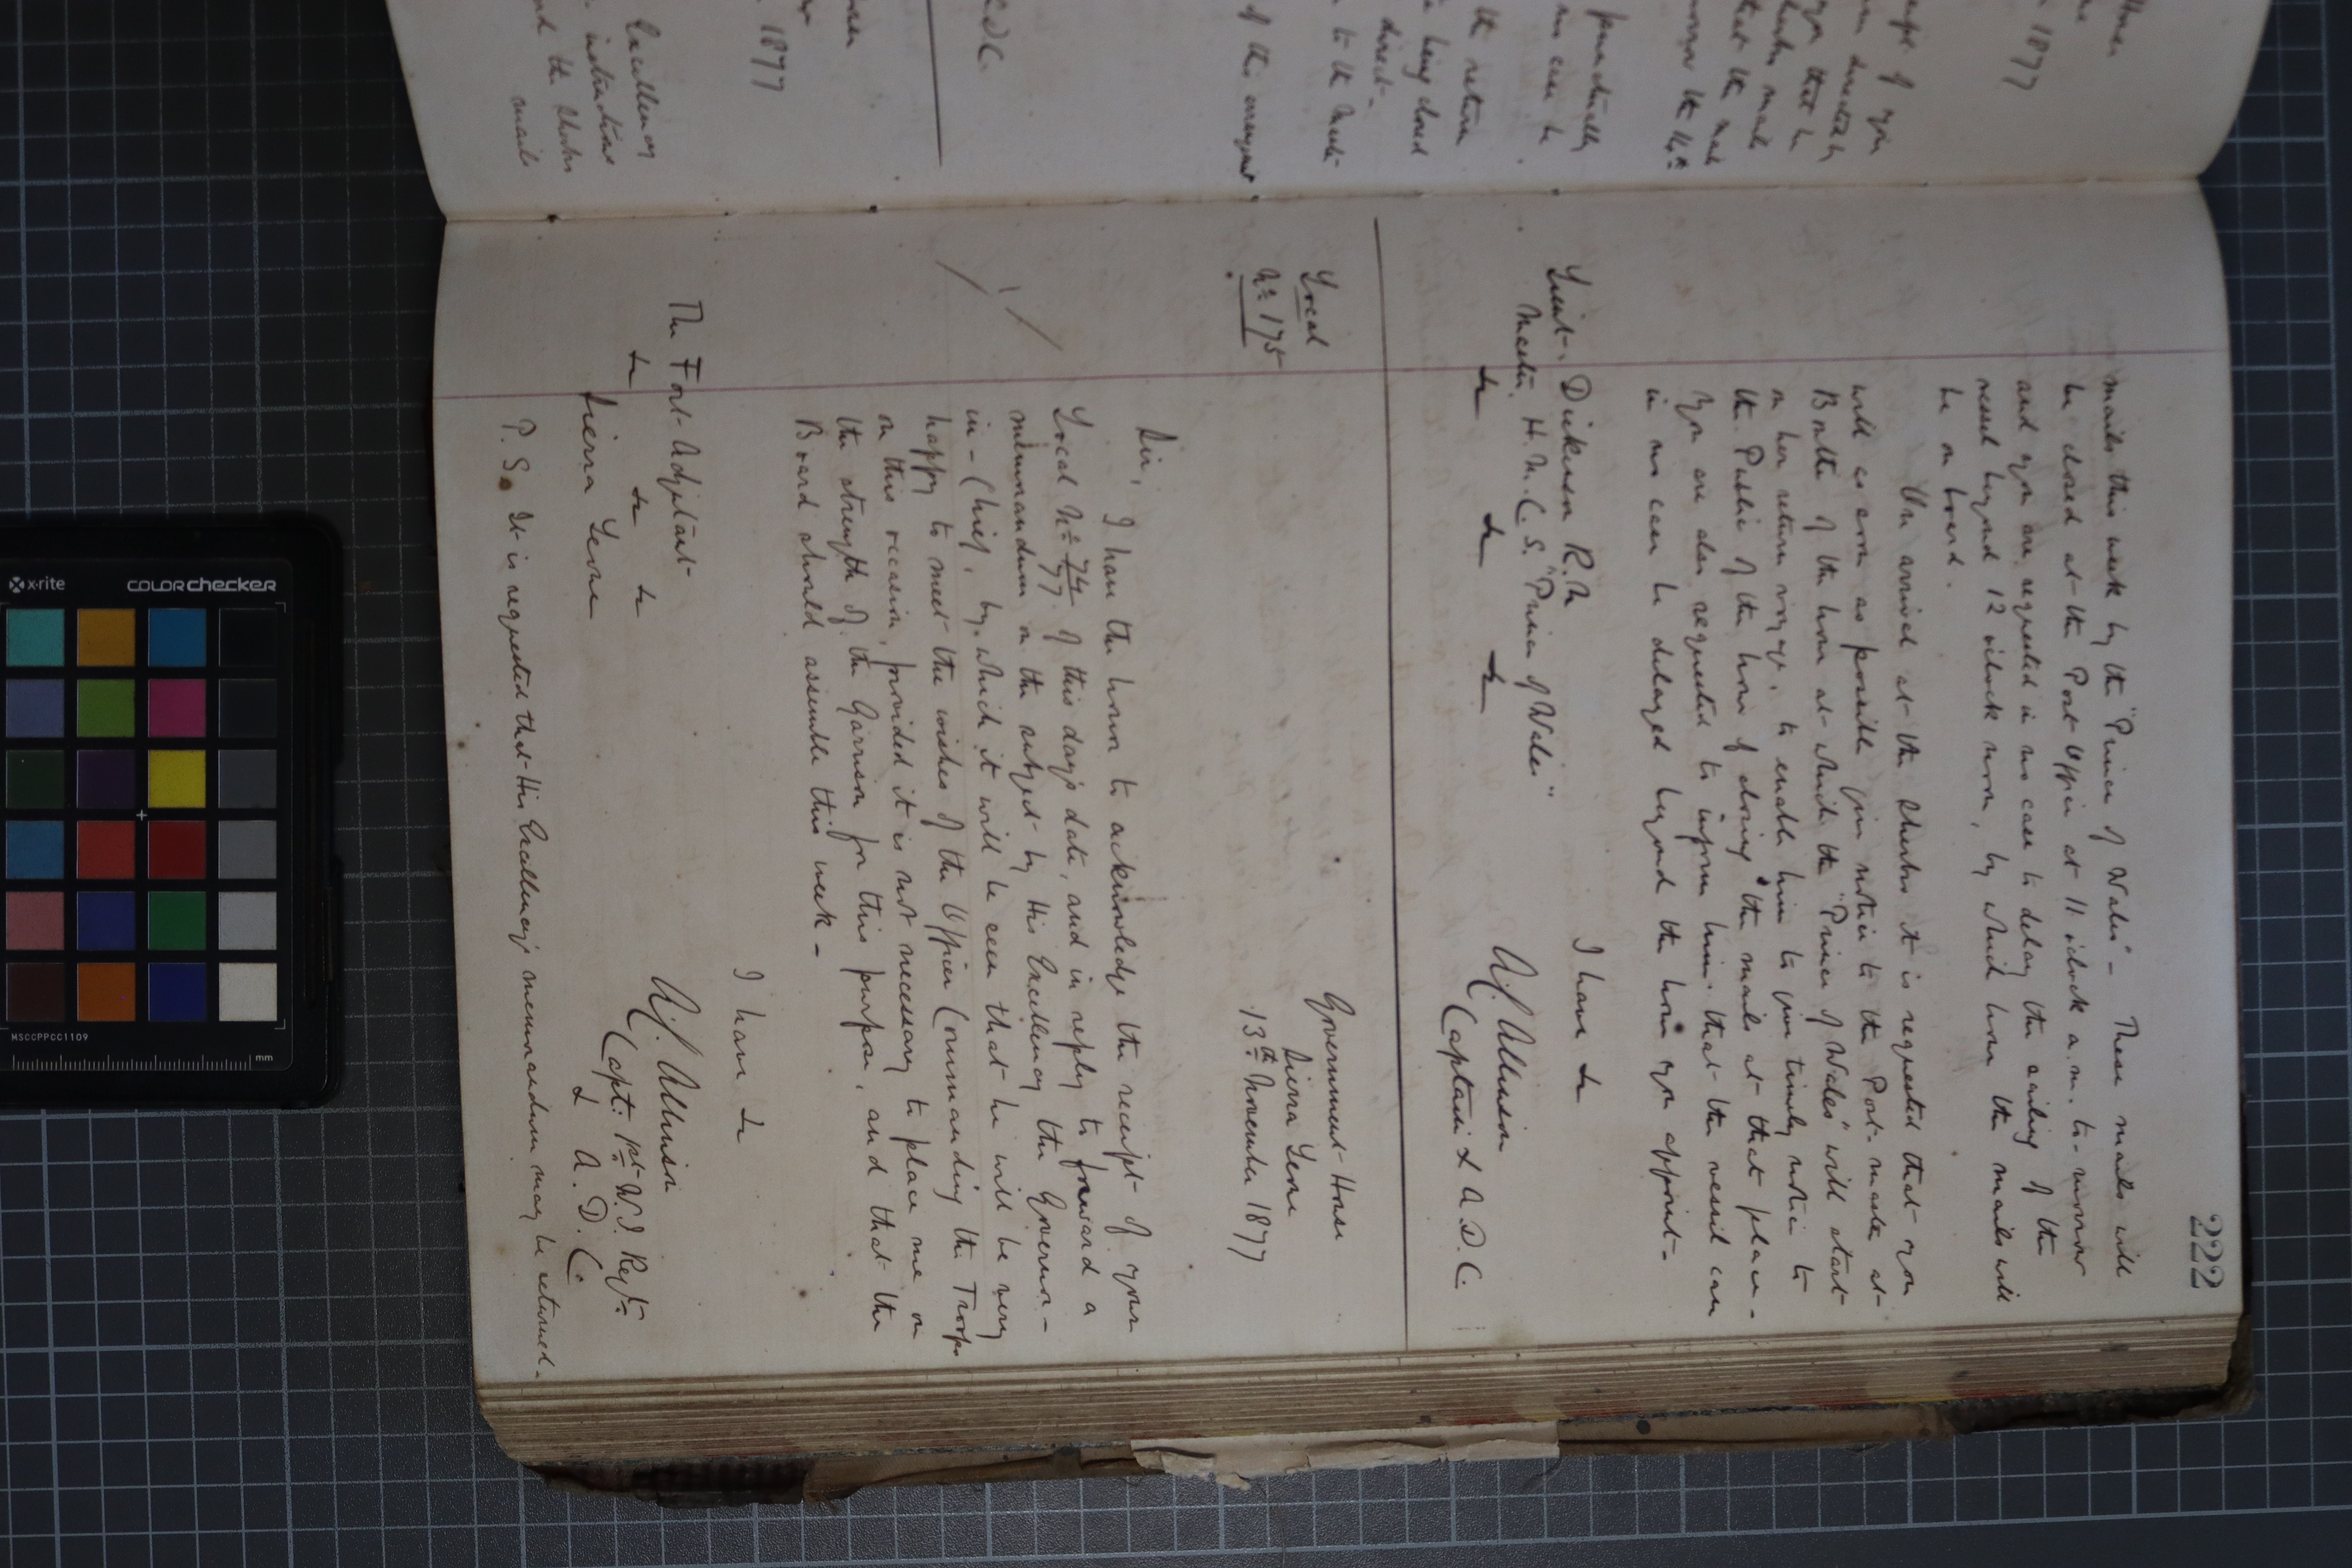 222
mails this week by the "Prince of Wales" - These mails will
be closed at the Post Office at 11 o'clock a.m. to-morrow
and you are requested in no case to delay the sailing of the
vessel beyond 12 o'clock noon, by which hour the mails will
be on board.
On arrival at the Sherbro it is requested that you
will as soon as possible give notice to the Post-master at
Bonthe of the hour at which the "Prince of Wales" will start
on her return voyage, to enable him to give timely notice to
the Public of the hour of closing the mails at that place -
You are also requested to inform him that the vessel can
in no case be delayed beyond the hour you appoint -
I have &
Lieut. Dickenson R.N
A.J. Allinson
Master H.M.C.S. "Prince of Wales"
Captain & A.D.C.
& & &
Local
No 175
Government House
Sierra Leone
13th November 1877
Sir,
I have the honor to acknowledge the receipt of your
Local No 74/77 of this day's date, and in reply to forward a
memorandum on the subject by His Excellency the Governor-
in-Chief, by which it will be seen that he will be very
happy to meet the wishes of the Officer Commanding the Troops
on this occasion, provided it is not necessary to place me on
the strength of the Garrison for this purpose, and that the
Board should assemble this week -
I have &
The Fort Adjutant
A.J. Allinson
& & &
Capt. 1st W.I. Regt
Sierra Leone
& A.D.C.
P.S. It is requested that His Excellency's memorandum may be returned -
1877
of your
you that he
the 14th
punctually
in no case be
the return
being closed
direct -
to the
of this arrangt
A.D.C.
1877
Excellency
instructions
and the Sherbro
mails
x-rite
COLORchecker
MSCCPPCC1109
mm